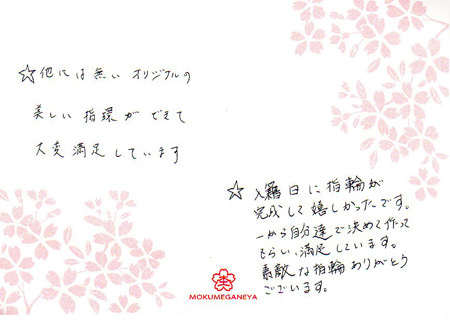 ☆他には無いオリジナルの
美しい指環ができて
大変満足しています
☆入籍日に指輪が
完成して嬉しかったです。
一から自分達で決めて作って
もらい、満足しています。
素敵な指輪ありがとう
ございます。
MOKUMEGANEYA